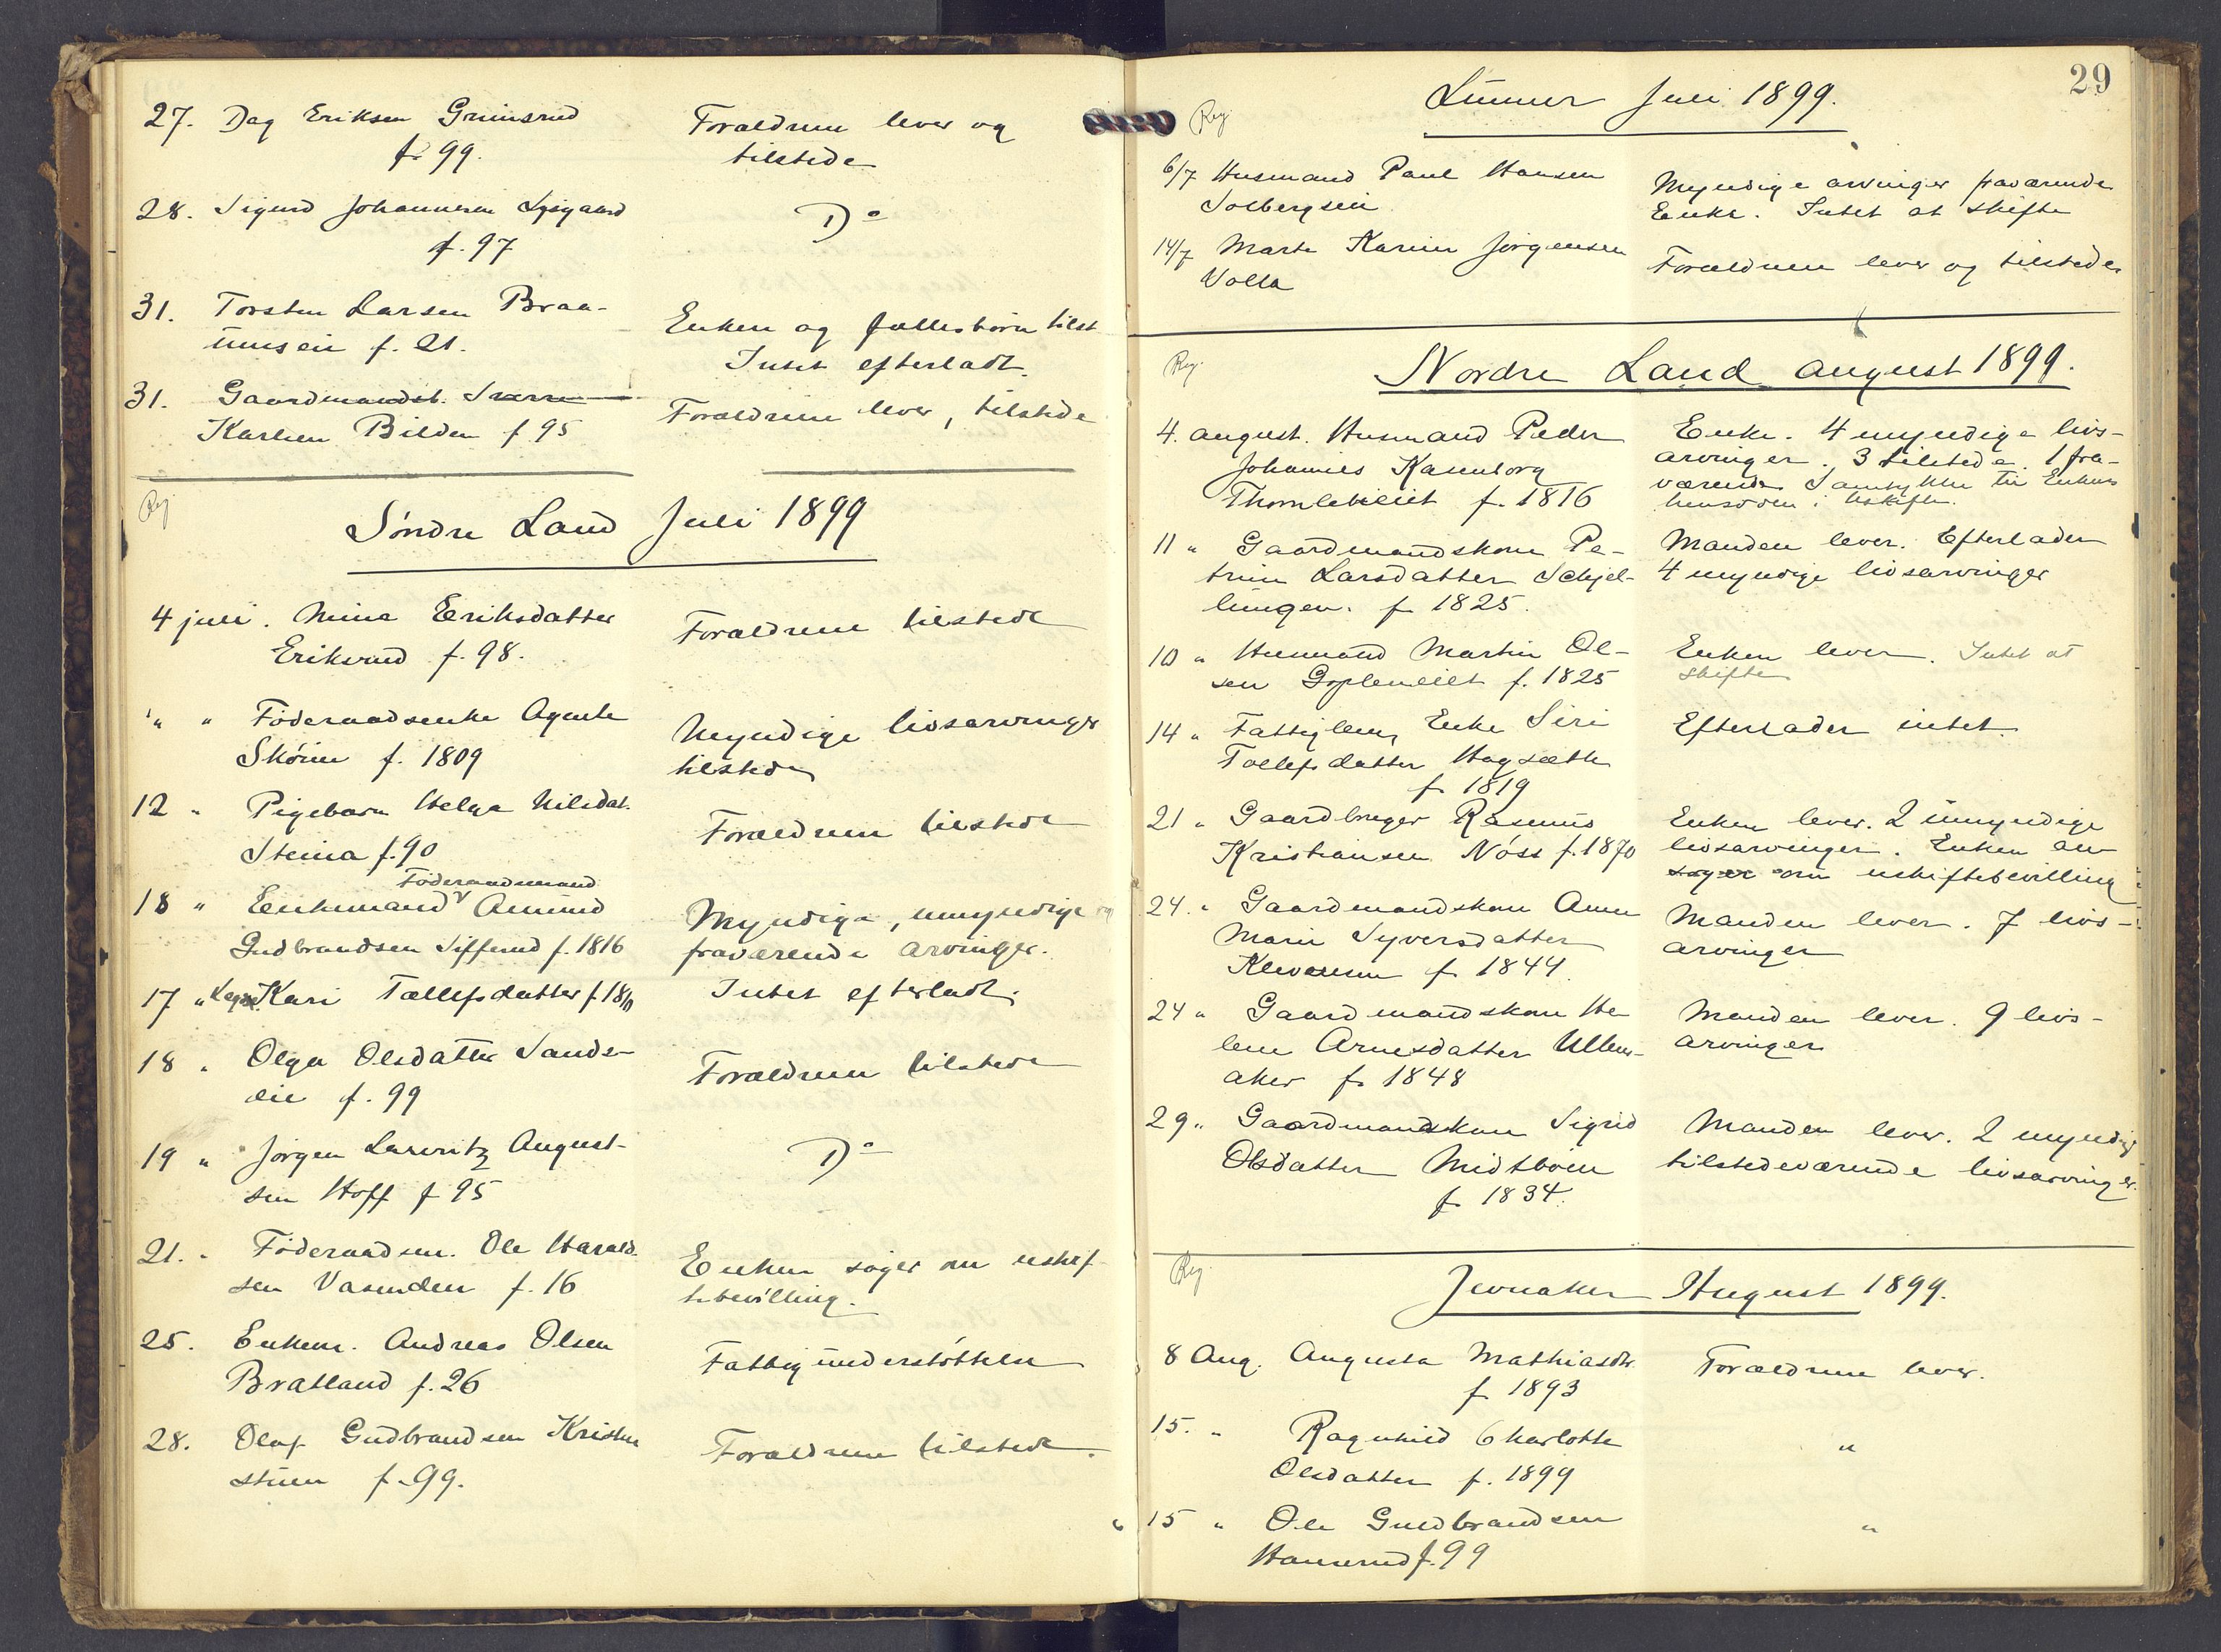 27. Dag Eriksen Grimsrud
f. 99.
Forældrene lever og
tilstede
28. Sigurd Johannesen Lysgaard
f. 97
Do
31. Torsten Larsen Braa-
f. 21.
Enken og fællesbørn tilst
Intet efterladt.
31. Gaardmandsb. Sverre
Karlsen Bilden f 95
Forældrene lever, tilstede
Reg
Søndre Land Juli 1899
4 juli. Mina Eriksdatter
Eriksrud f. 98.
Forældrene tilstede
" " Föderaadsenke Agnete
Skøien f. 1809
Myndige livsarvinger
tilstede
12 " Pigebarn Helga Nilsdat.
Steina f. 90
Forældrene tilstede
Föderaadsmand
18 " Enkemand Amund
Gudbrandsen f. 1816
Myndige, umyndige og
fraværende arvinger.
17 " Kari Tollefsdatter
Intet efterladt.
18 " Olga Olsdatter Sands-
eie f. 99
Forældrene tilstede
19 " Jørgen Lauritz August-
sen Hoff f 95
Do
21. " Föderaadsm. Ole Harald-
sen Vasenden f. 16
Enken søger om uskif-
tebevilling.
25. Enkem. Andreas Olsen
Bratland f. 26
Fattigunderstøttelse
28. Olaf Gudbrandsen Kristen
stuen f. 99.
Forældrene tilstede.
29
Reg
Lunner Juli 1899.
6/7 Husmand Paul Hansen
Solbergseie
Myndige arvinger fraværende
Enke. Intet at skifte
14/7 Marte Karine Jørgensen
Volla
Forældrene lever og tilstede
Reg.
Nordre Land august 1899.
4. august. Husmand Peder
Johannes
f. 1816
Enke. 4 myndige livs-
arvinger. 3 tilstede. 1 fra-
værende Samtykke til Enkens
hensidden i uskifte.
11 " Gaardmandskone Pe-
trine Larsdatter Schjel-
lingen. f. 1825.
Manden lever. Efterlader
4 myndige livsarvinger
10 " Husmand Martin Ol-
sen f. 1825
Enken lever. Intet at
skifte
14 " Fattiglem, Enke Siri
Tollefsdatter Hagsæth
f. 1819
Efterlader intet.
21 " Gaardbruger Rasmus
Kristiansen Nöss f. 1870
Enken lever. 2 umyndige
livsarvinger. Enken an-
søger om uskiftebevilling
24. " Gaardmandskone Anne
Marie Syversdatter
f. 1844.
Manden lever. 7 livs-
arvinger
24 " Gaardmandskone He
lene Arnesdatter Ullens-
aker f. 1848
Manden lever. 9 livs-
arvinger
29 " Gaardmandskone Sigrid
Olsdatter Midtbøen
f. 1834.
Manden lever. 2 myndige
tilstedeværende livsarvinger.
Reg.
Jevnaker August 1899.
8 Aug. Augusta Mathiasdtr.
f. 1893
Forældrene lever.
15. " Ragnhild Charlotte
Olsdatter f. 1899
"
15 " Ole Guldbrandsen
Hanserud f. 99
"